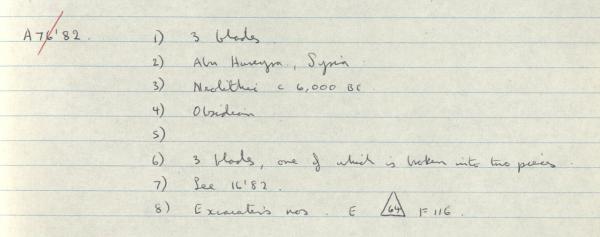 A76'82. 1) 3 blades.
2) Abu Hureyra, Syria
3) Neolithic c 6,000 BC
4) Obsidian
5)
6) 3 blades, one of which is broken into two pieces.
7) See 16'82.
8) Excavator's nos. E 64 F 116.